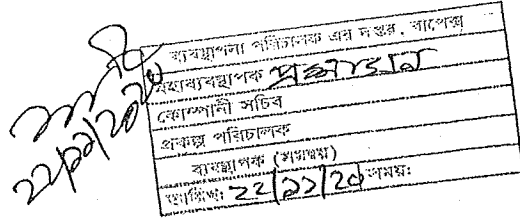 ব্যবস্থাপনা পরিচালক এর দপ্তর, বাপেক্স
মহাব্যবস্থাপক প্রশাসন
কোম্পানী সচিব
প্রকল্প পরিচালক
ব্যবস্থাপক (সমন্বয়)
তারিখ: ২২/১১/২০ সময়:
২২/১১/২০২০